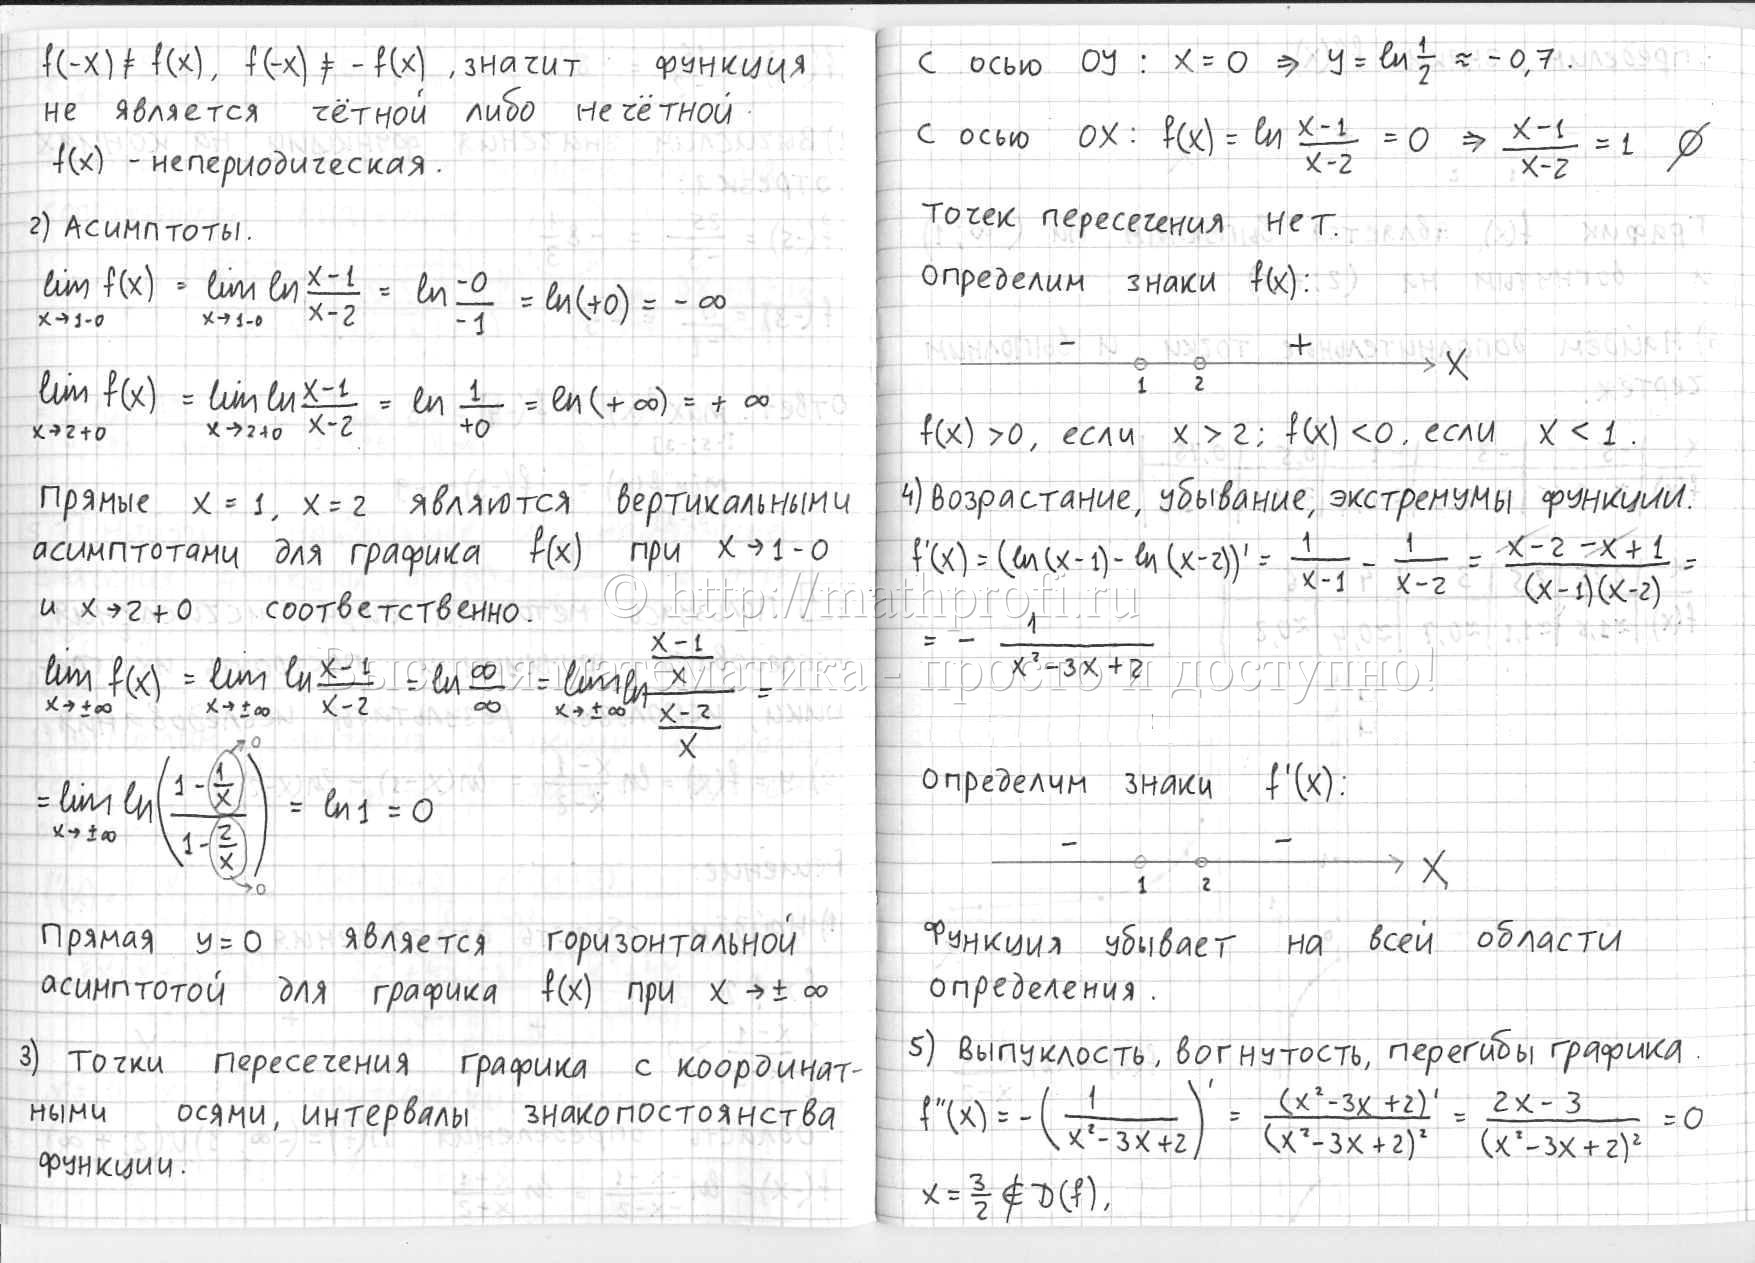 f(-x) ≠ f(x), f(-x) ≠ -f(x), значит функция
не является чётной либо нечётной.
f(x) - непериодическая.
2) Асимптоты.
lim f(x) = lim ln (x-1)/(x-2) = ln (-0)/(-1) = ln(+0) = -∞
x→1-0 x→1-0
lim f(x) = lim ln (x-1)/(x-2) = ln 1/(+0) = ln(+∞) = +∞
x→2+0 x→2+0
Прямые x = 1, x = 2 являются вертикальными
асимптотами для графика f(x) при x→1-0
и x→2+0 соответственно.
lim f(x) = lim ln (x-1)/(x-2) = ln ∞/∞ = lim ln ((x-1)/x)/((x-2)/x) =
x→±∞ x→±∞ x→±∞
= lim ln((1 - 1/x)/(1 - 2/x)) = ln 1 = 0
x→±∞ →0 →0
Прямая y=0 является горизонтальной
асимптотой для графика f(x) при x→±∞
3) Точки пересечения графика с координат-
ными осями, интервалы знакопостоянства
функции.
С осью OY: x=0 ⇒ y = ln 1/2 ≈ -0,7.
С осью OX: f(x) = ln (x-1)/(x-2) = 0 ⇒ (x-1)/(x-2) = 1 ∅
Точек пересечения нет.
Определим знаки f(x):
- +
1 2 X
f(x) >0, если x > 2; f(x) <0, если x < 1.
4) Возрастание, убывание, экстремумы функции.
f'(x) = (ln(x-1) - ln(x-2))' = 1/(x-1) - 1/(x-2) = (x-2-x+1)/((x-1)(x-2)) =
= - 1/(x²-3x+2)
Определим знаки f'(x):
- -
1 2 X
Функция убывает на всей области
определения.
5) Выпуклость, вогнутость, перегибы графика.
f''(x) = -(1/(x²-3x+2))' = (x²-3x+2)'/(x²-3x+2)² = (2x-3)/(x²-3x+2)² = 0
x = 3/2 ∉ D(f),
© http://mathprofi.ru
Высшая математика - просто и доступно!